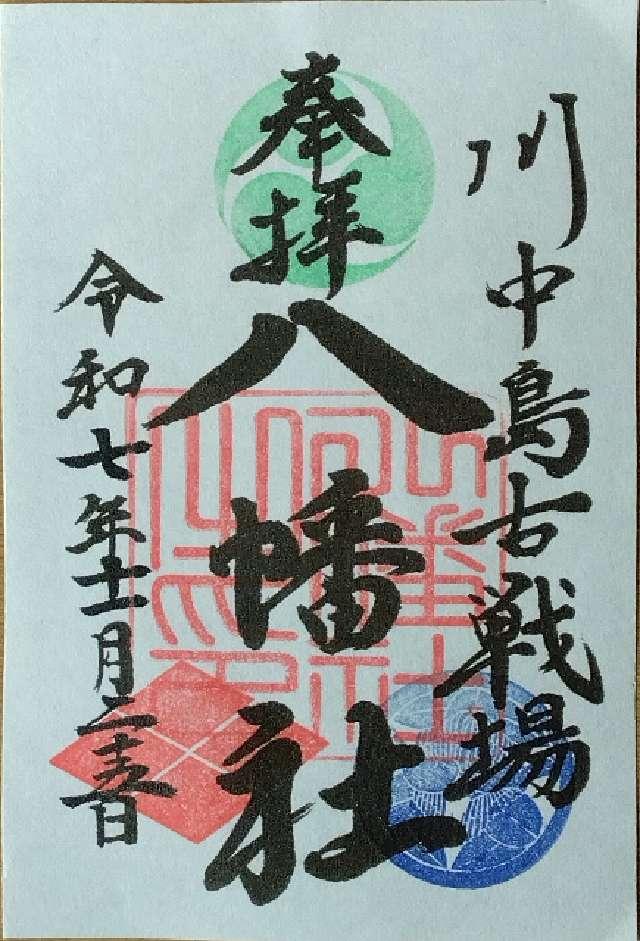 川中島古戦場
奉拝
八幡社
令和七年十一月二十五日